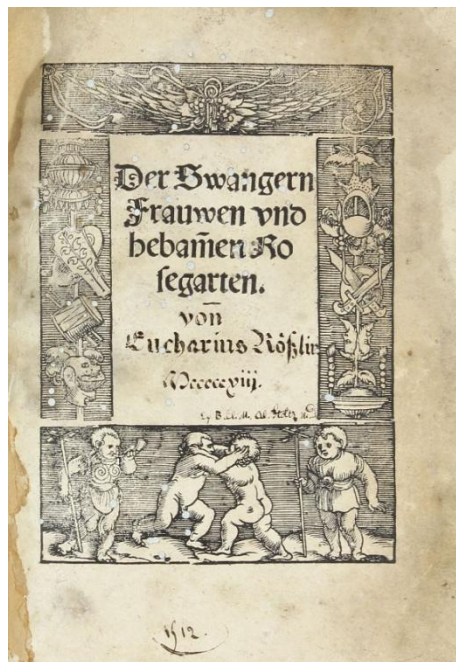 Der Swangern
Frauwen vnd
hebam̄en Ro
segarten.
von
Eucharius Rößlin
Mcccccxiij.
1512.